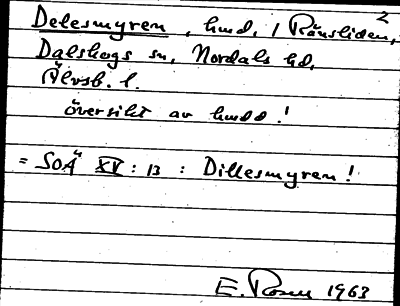 2
Delesmyren, hmd, / Ränsliden,
Dalskogs sn, Nordals hd,
Älvsb. l.
översikt av hmdd!
= SOÄ XV : 13 : Dillesmyren!
E. Rosen 1963